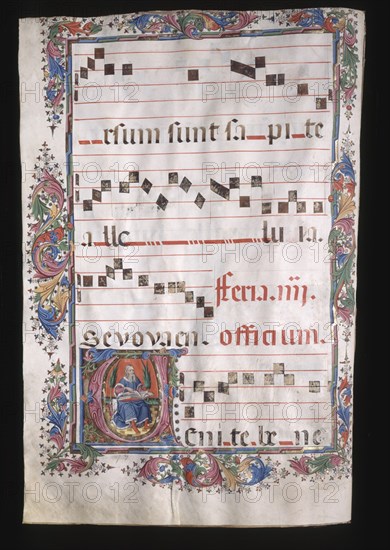 rsum sunt sa_pi_te
a lle lu ia.
fferia.iiij.
Sevovaen. officium.
Veni.te.be_ne
PHOTO12